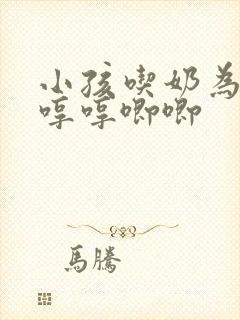 小孩喫奶為
哼哼唧唧
馬騰